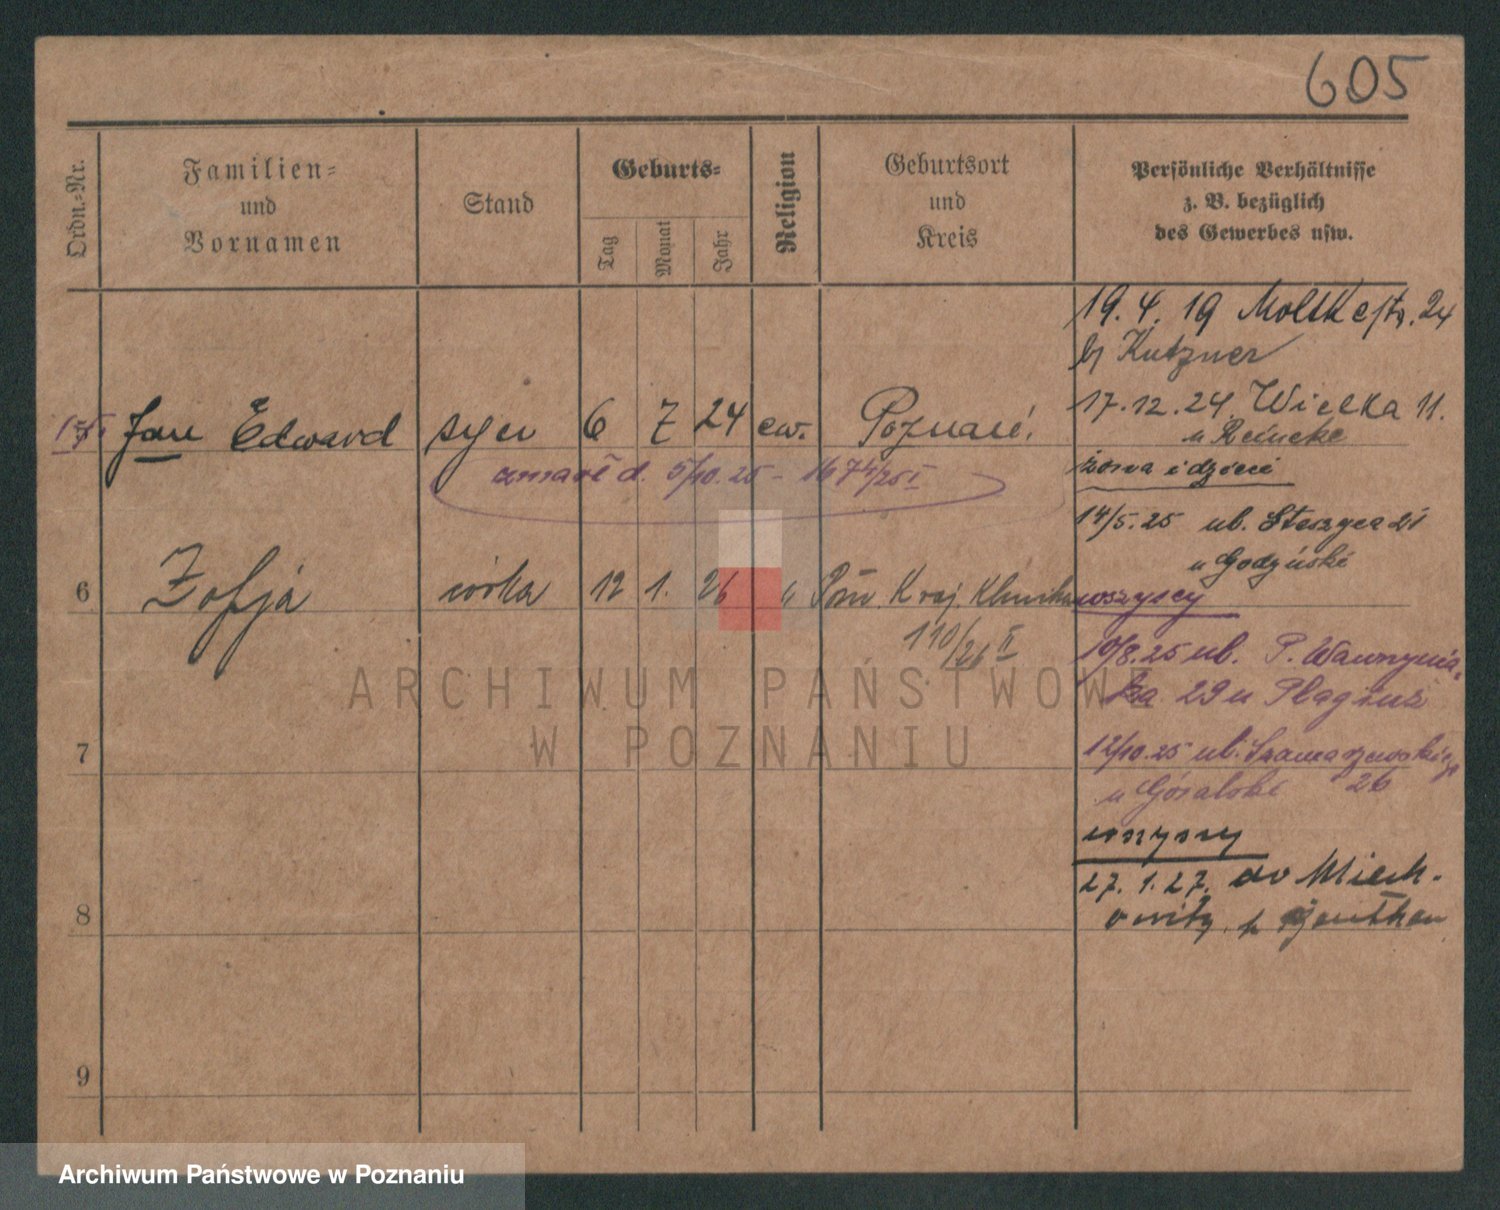 605
Ordn.-Nr.
Familien=
und
Vornamen
Stand
Geburts=
Tag
Monat
Jahr
Religion
Geburtsort
und
Kreis
Persönliche Verhältnisse
z. B. bezüglich
des Gewerbes usw.
19. 4. 19 Moltkestr. 24
b/ Kutzner
17.12.24. Wielka 11.
u Reineke
żona i dzieci
14/5.25 ul. Staszyca 21
u Godziński
wszyscy
10/8.25 ul. P. Wawrzynia-
ka 29 u Plagius
12/10.25 ul. Szamarzewskiego
26
u Góralski
wszyscy
27. 1. 27. do Miech-
owitz
5 Jan Edward syn 6 7 24 ew. Poznań.
zmarł d. 5/10.25 - 1674/25 I
6 Zofja córka 12 1. 26 " Pozn. Kraj. Klinika
110/26 II
7
8
9
ARCHIWUM PAŃSTWOWE
W POZNANIU
Archiwum Państwowe w Poznaniu